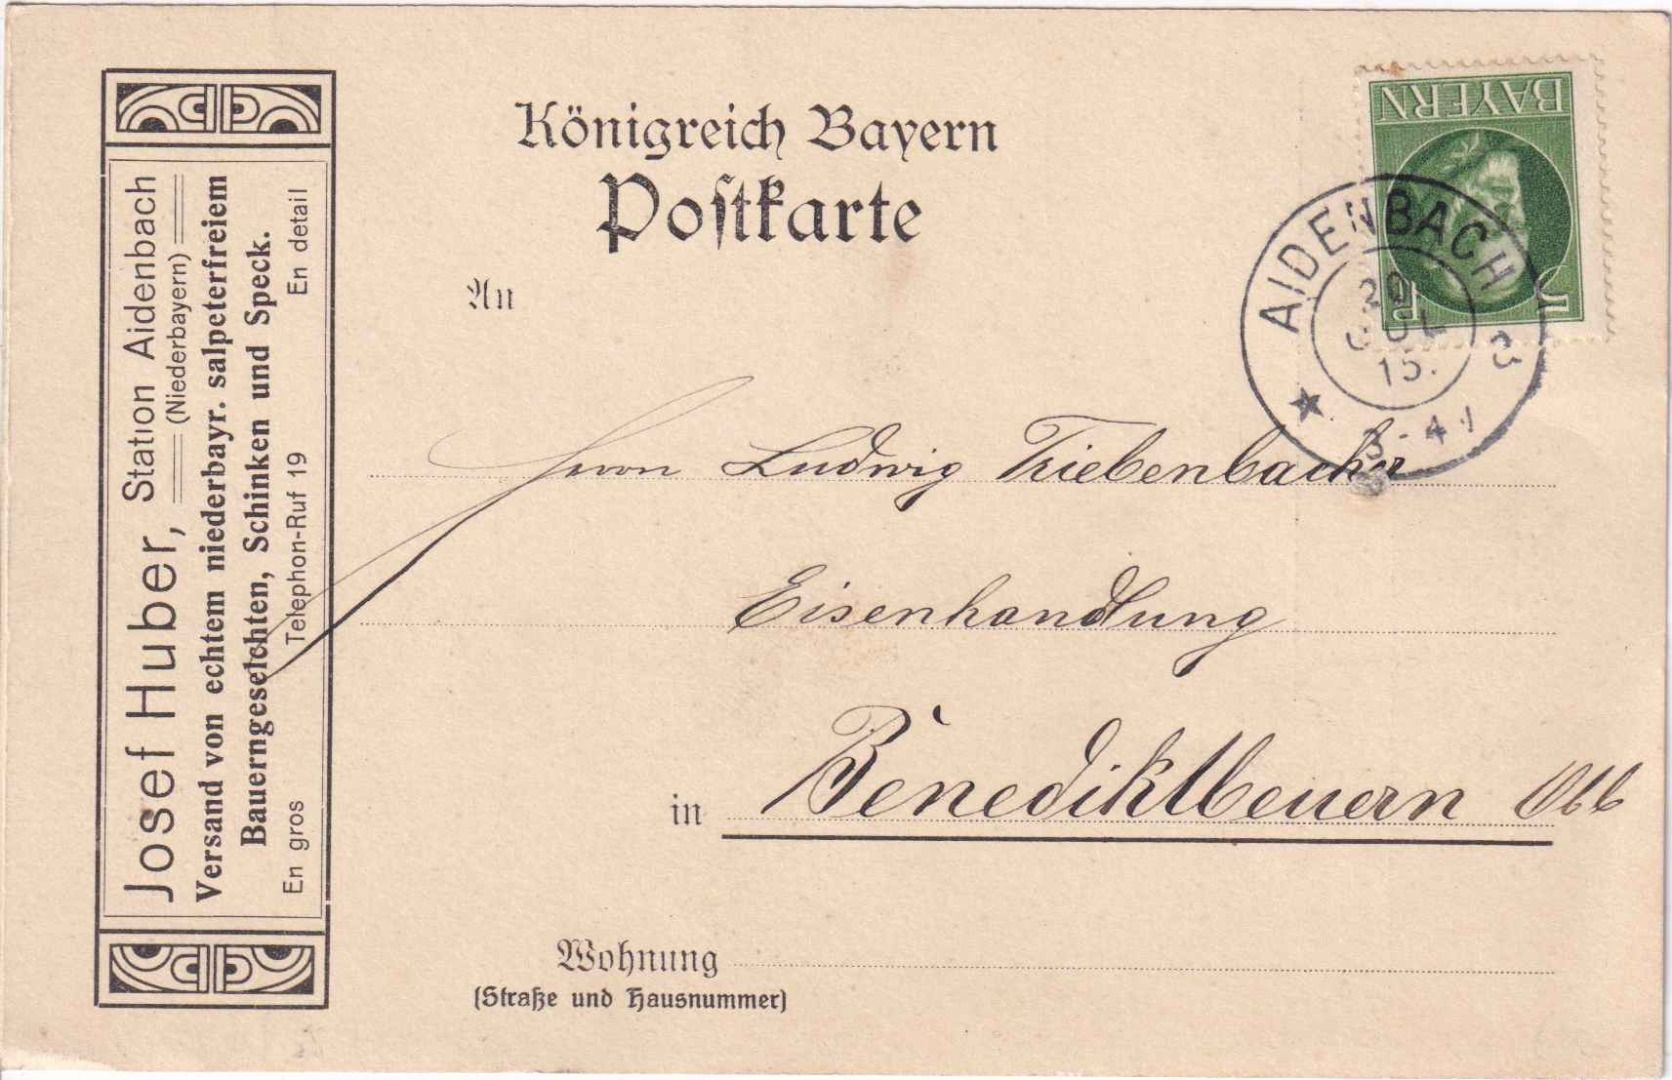 Josef Huber, Station Aidenbach
(Niederbayern)
Versand von echtem niederbayr. salpeterfreiem
Bauerngeselchten, Schinken und Speck.
En gros Telephon-Ruf 19 En detail
Königreich Bayern
Postkarte
An
BAYERN
5
AIDENBACH
20
JUL
15.
3-4
Herrn Ludwig Triebenbacher
Eisenhandlung
in Benediktbeuern Obb
Wohnung
(Straße und Hausnummer)